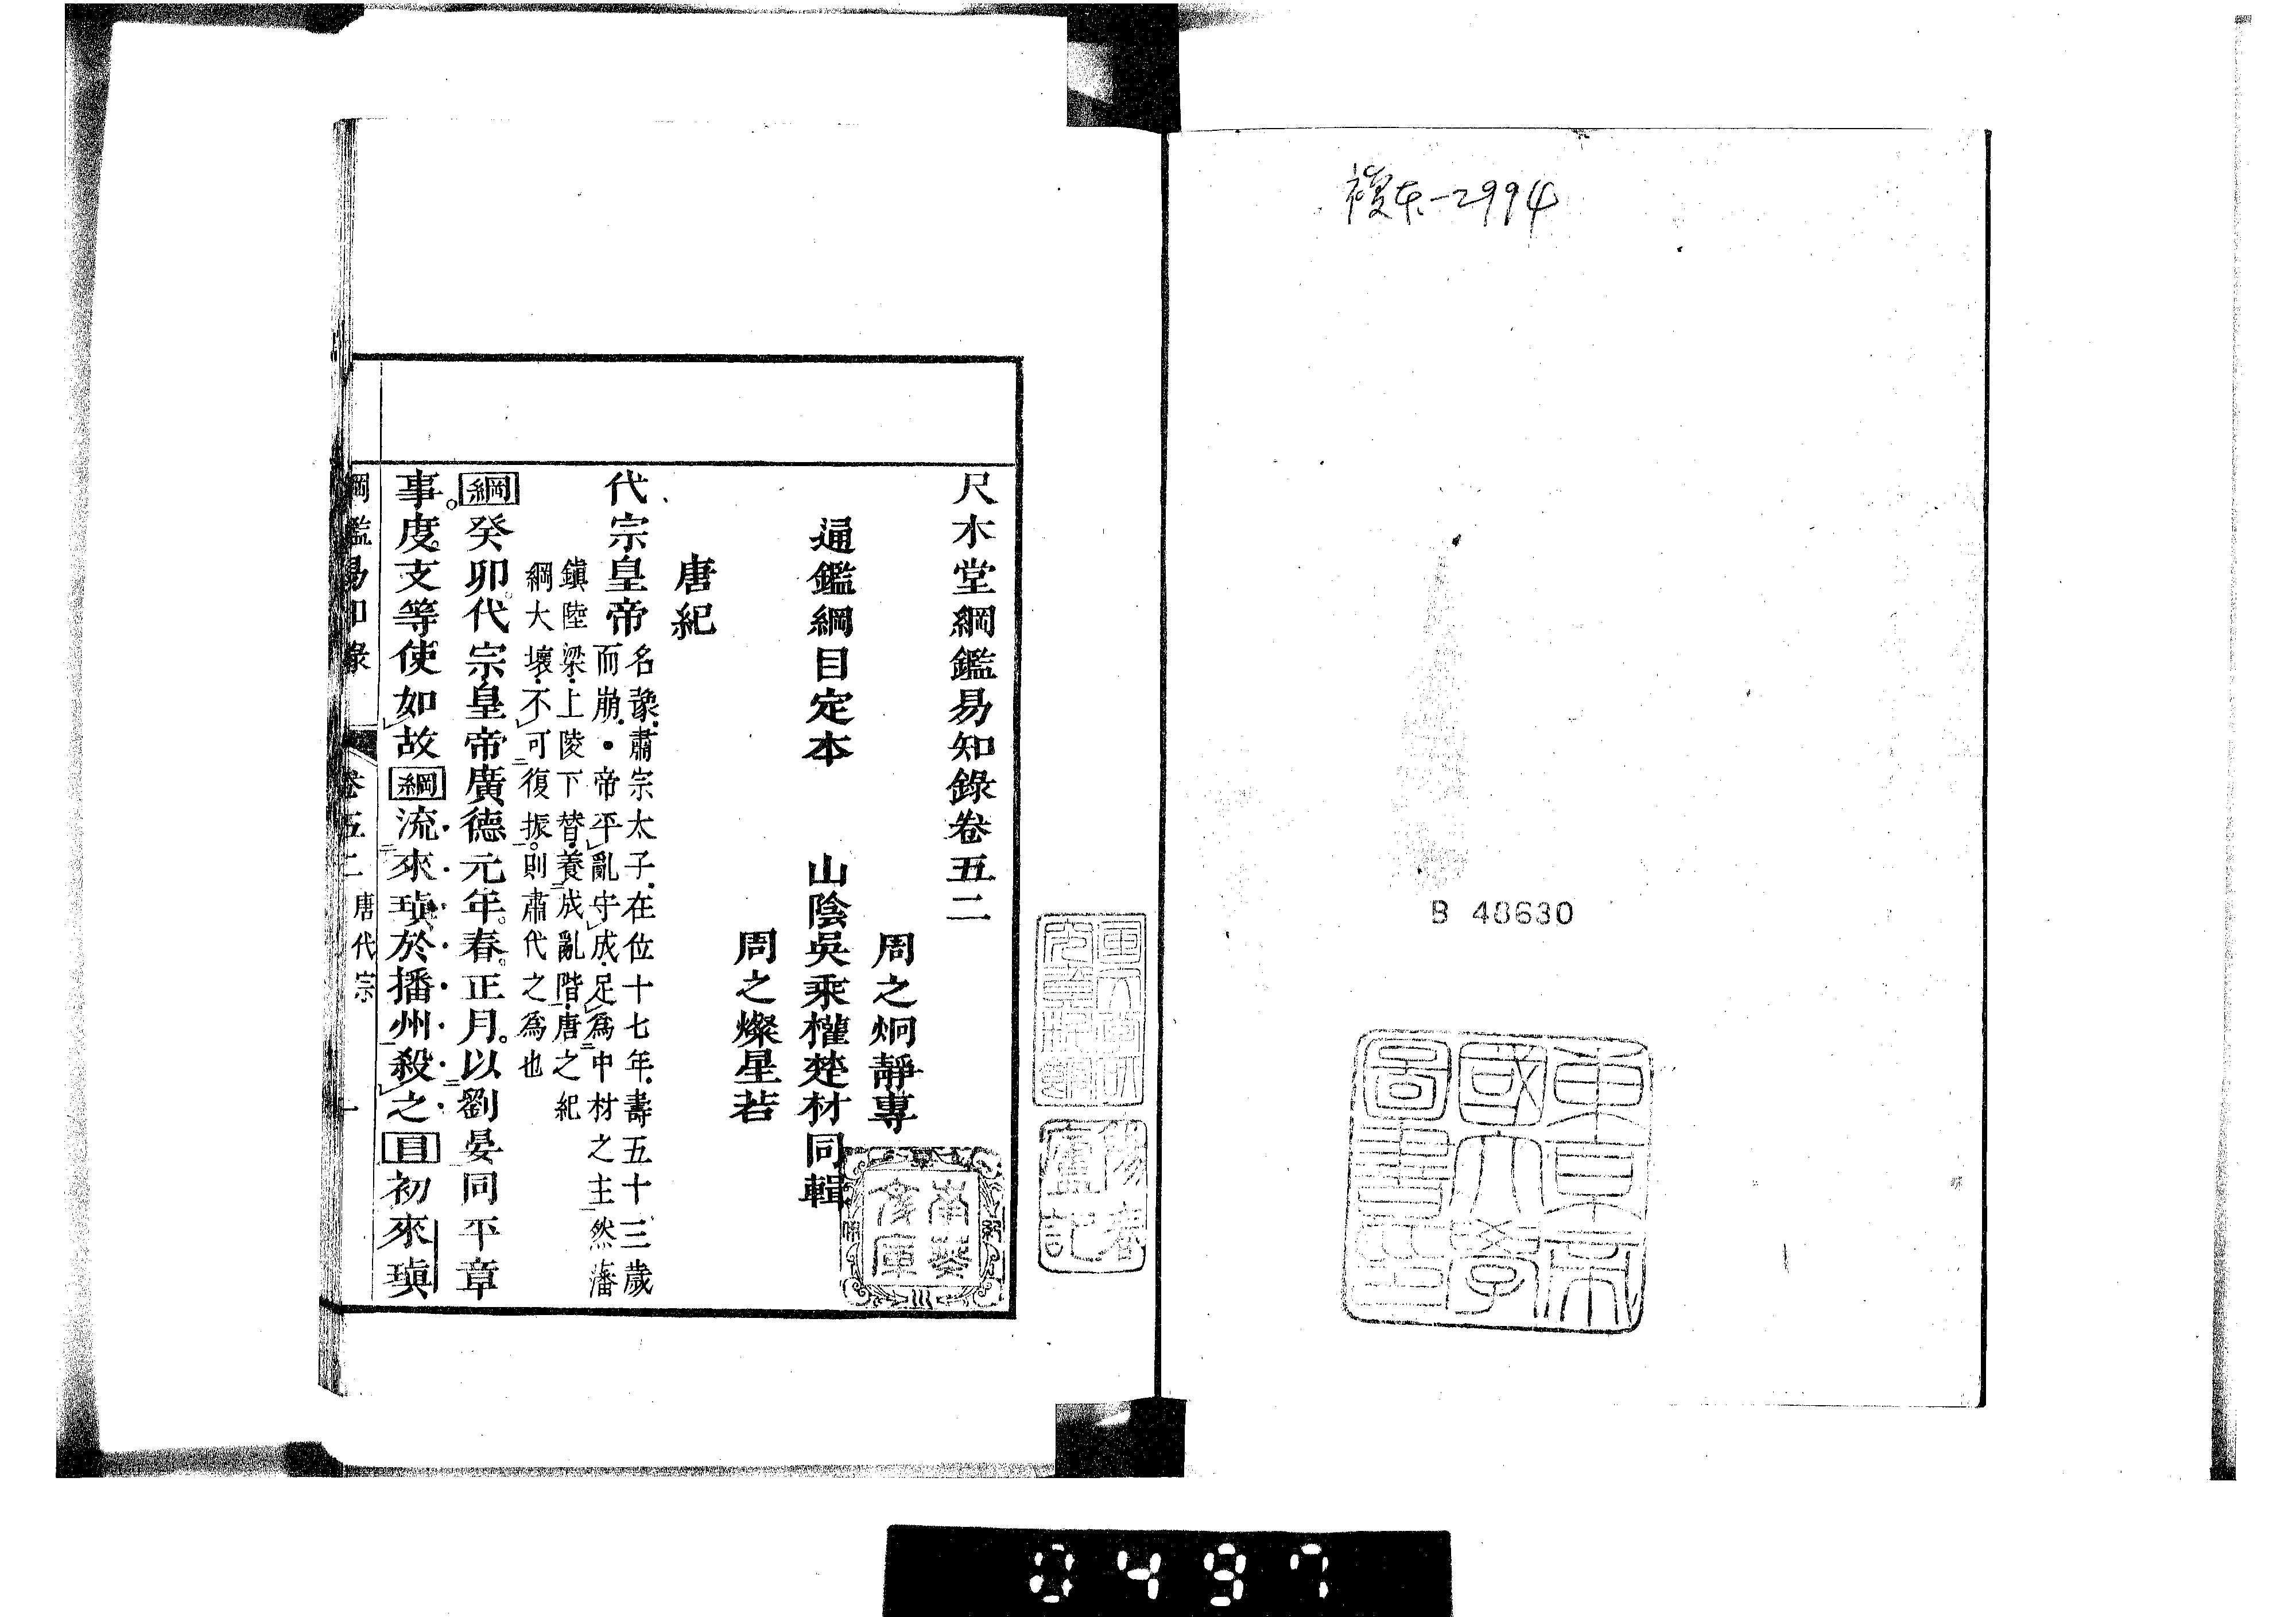 複本-2994
B 48630
東京帝
國大學
圖書印
陽春
廬記
南葵
文庫
尺木堂綱鑑易知錄卷五二
周之炯靜專
通鑑綱目定本 山陰吳乘權楚材同輯
周之燦星若
唐紀
代宗皇帝 名豫肅宗太子在位十七年壽五十三歲
而崩・帝平亂守成足爲中材之主然藩
鎭陸梁上陵下替養成亂階唐之紀
綱大壞不可復振則肅代之爲也
綱癸卯代宗皇帝廣德元年春正月以劉晏同平章
事度支等使如故綱流來瑱於播州殺之目初來瑱
綱鑑易知錄 卷五二 唐代宗 一
0497